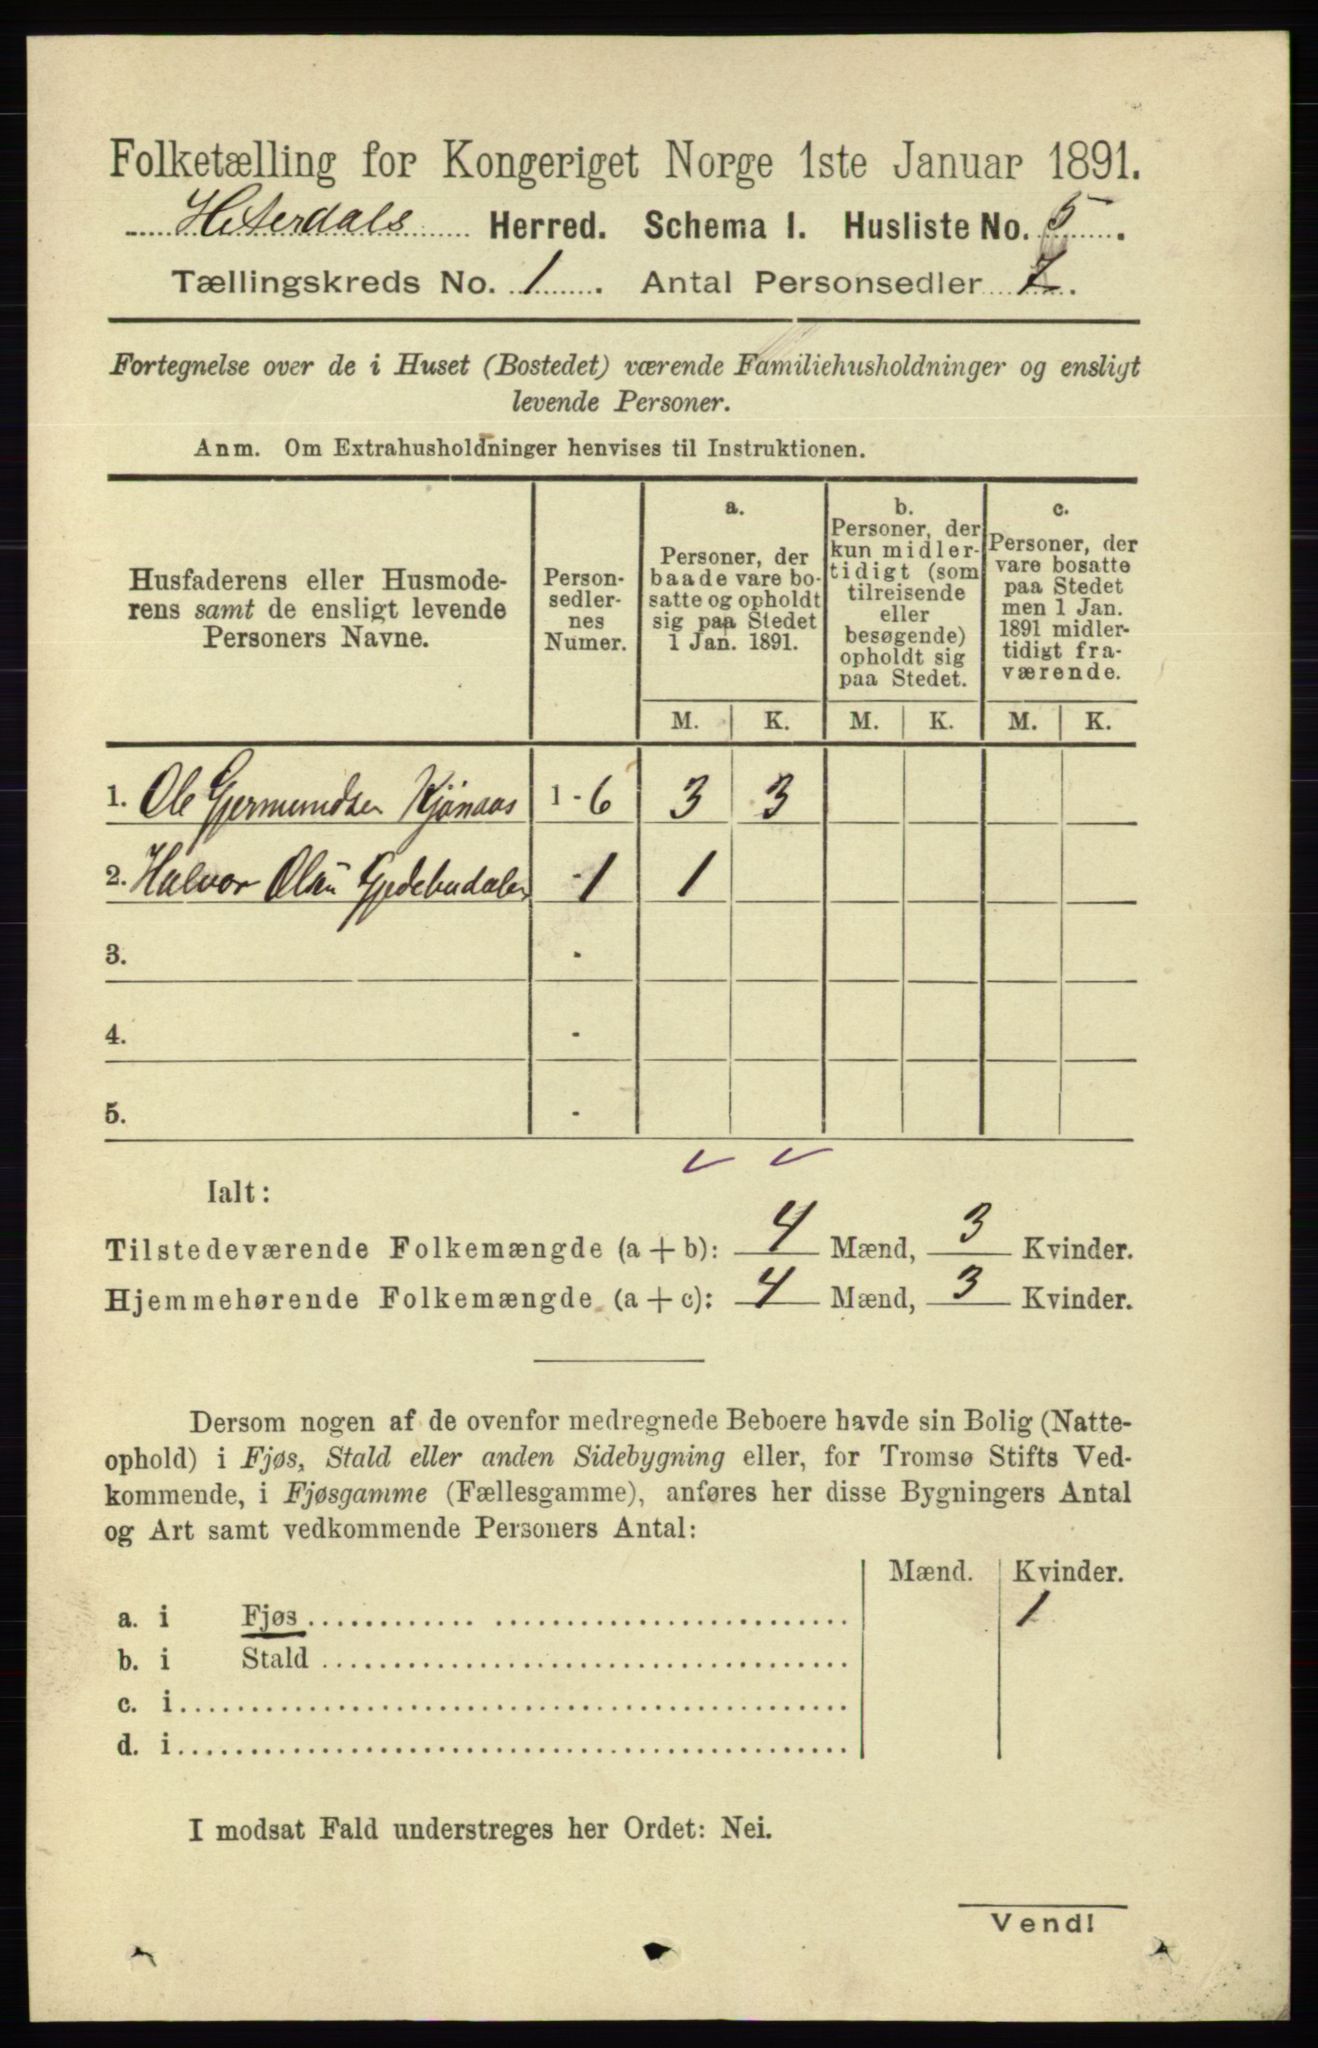 Folketælling for Kongeriget Norge 1ste Januar 1891.
Hiterdals Herred. Schema I. Husliste No. 5.
Tællingskreds No. 1. Antal Personsedler 7.
Fortegnelse over de i Huset (Bostedet) værende Familiehusholdninger og ensligt
levende Personer.
Anm. Om Extrahusholdninger henvises til Instruktionen.
Husfaderens eller Husmode-
rens samt de ensligt levende
Personers Navne.
Person-
sedler-
nes
Numer.
a.
Personer, der
baade vare bo-
satte og opholdt
sig paa Stedet
1 Jan. 1891.
b.
Personer, der
kun midler-
tidigt (som
tilreisende
eller
besøgende)
opholdt sig
paa Stedet.
c.
Personer, der
vare bosatte
paa Stedet
men 1 Jan.
1891 midler-
tidigt fra-
værende.
M. K. M. K. M. K.
1. Ole Gjermundsen Kjønaas 1 - 6 3 3
2. Halvor Olsen - 1 1
3. -
4. -
5. -
Ialt:
Tilstedeværende Folkemængde (a + b): 4 Mænd, 3 Kvinder.
Hjemmehørende Folkemængde (a + c): 4 Mænd, 3 Kvinder.
Dersom nogen af de ovenfor medregnede Beboere havde sin Bolig (Natte-
ophold) i Fjøs, Stald eller anden Sidebygning eller, for Tromsø Stifts Ved-
kommende, i Fjøsgamme (Fællesgamme), anføres her disse Bygningers Antal
og Art samt vedkommende Personers Antal:
Mænd. Kvinder.
a. i Fjøs 1
b. i Stald
c. i
d. i
I modsat Fald understreges her Ordet: Nei.
Vend!